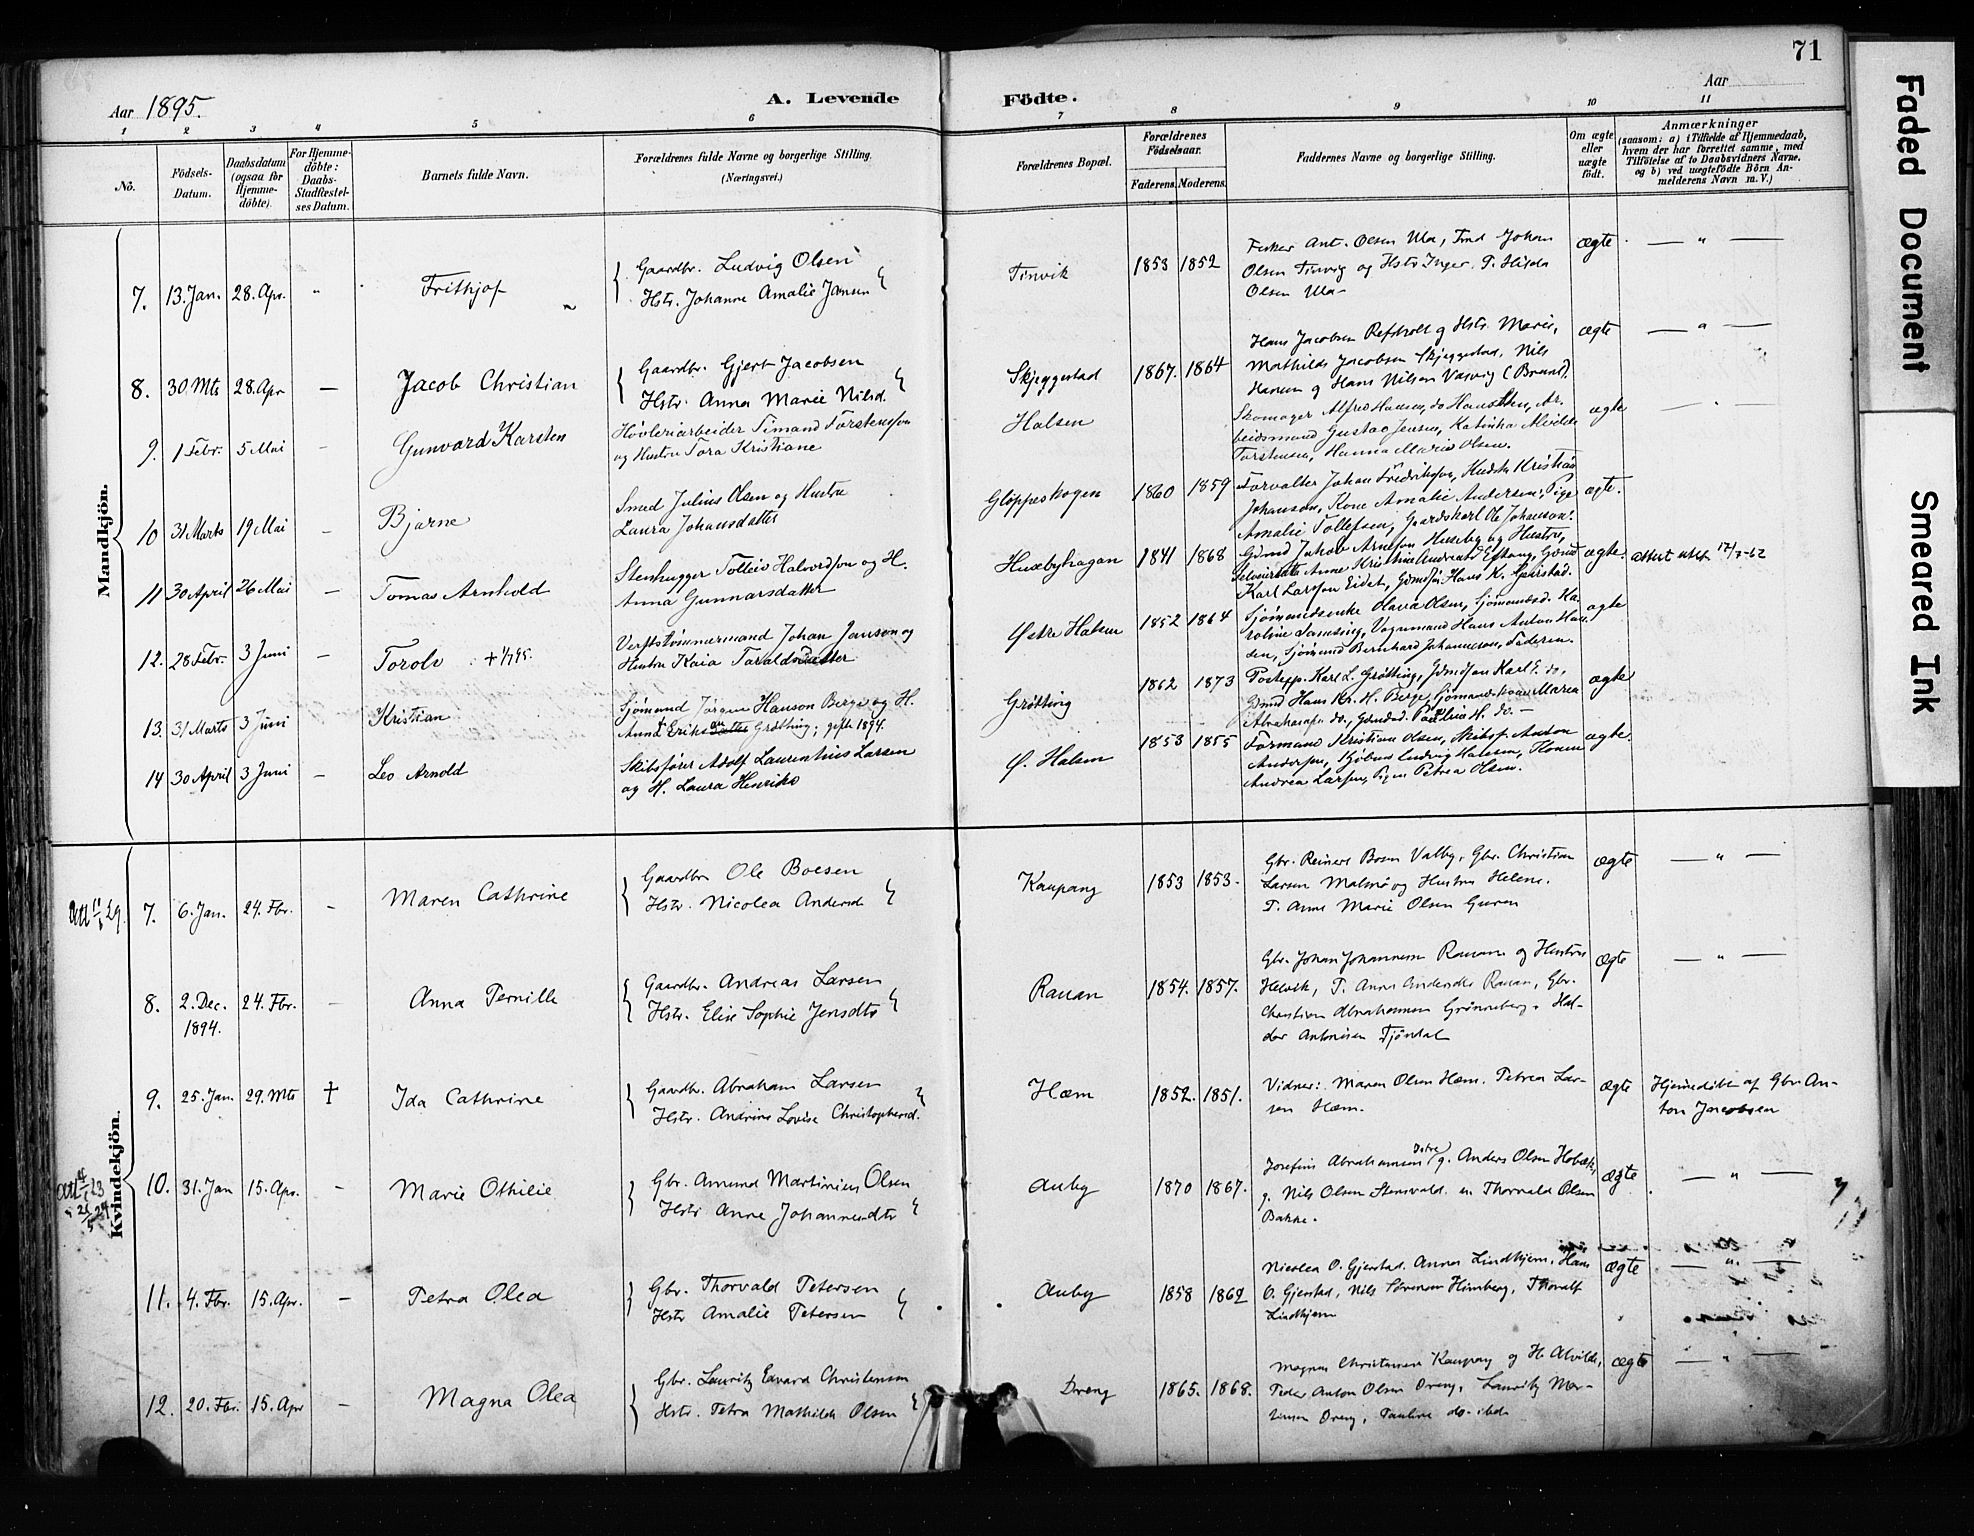 71
Aar 1895.
A. Levende Födte.
Aar
1 2 3 4 5 6 7 8 9 10 11
Nö.
Födsels-Datum.
Daabsdatum (ogsaa for Hjemme-döbte).
For Hjemme-döbte: Daabs-Stadfæstel-ses Datum.
Barnets fulde Navn.
Forældrenes fulde Navne og borgerlige Stilling. (Næringsvei.)
Forældrenes Bopæl.
Forældrenes Födselsaar.
Faderens. Moderens.
Faddernes Navne og borgerlige Stilling.
Om ægte eller uægte födt.
Anmærkninger
(saasom: a) i Tilfælde af Hjemmedaab,
hvem der har forrettet samme, med
Tilföielse af to Daabsvidners Navne.
og b) ved uægtefödte Börn An-
melderens Navn m. V.)
Mandkjön.
7. 13. Jan. 28. Apr. " Frithjof
Gaardbr. Ludvig Olsen
Hstr. Johanne Amalie Jansen
Tinvik 1853 1852
Fisker Ant. Olsen Ula, Johan
Olsen Tinvig og Hstr Inger. P. Hilda
Olsen Ula
ægte — " —
8. 30 Mts 28. Apr — Jacob Christian
Gaardbr. Gjert Jacobsen
Hstr. Anna Marie Nilsd.
Skjeggestad 1867. 1864
Hans Jacobsen Refsholt g Hstr. Marie,
Mathilde Jacobsen Skjeggestad, Nils
Hansen g Hans Nilsen Vasvig (Brunl).
ægte — " —
9. 1 Febr. 5 Mai — Gunvard Karsten
Høvleriarbeider Timand Torstensson
og Hustru Tora Kristiane
Halsen
Skomager Alfred Hansen, do Hans Olsen, Ar-
beidsmand Gustav Jensen, Katinka Alvilde
Torstensen, Hanna Marie Olsen.
ægte — " —
10 31 Marts 19 Mai — Bjarne
Smed Julius Olsen og Hustru
Laura Johansdatter
Gloppeskogen 1860 1859
Forvalter Johan Fredriksson, Kudsk Kristian
Johanson, Kone Amalie Andersen, Pige
Amalie Tollefsen, Gaardskarl Ole Johanson.
ægte.
11 30 April 26 Mai — Tomas Arnhold
Stenhugger Tolleiv Halvordson og H.
Anna Gunnarsdatter
Husebyhagan 1841 1868
Gdmd Jakob Arneson Huseby og Hustru,
Selveiersdtr Anne Kristine Andreasd Eftang, Gdmd
Karl Larsson Eidet, Gdmdsøn Hans K.
ægte. attest utst. 17/7-62
12. 28 Febr. 3 Juni — Torolv + 1/7 95.
Verftstømmermand Johan Janson og
Hustru Kaia Taraldsdatter
Østre Halsen 1852 1864
Sjømandsenke Olava Olsen, Sjømandsd. Ka-
roline Samsing, Vognmand Hans Anton Han-
sen, Sjømand Bernhard Johannesen, Faderen.
ægte
13. 31 Marts 3 Juni Kristian
Sjømand Jørgen Hanson Berge og H.
Anna Eriksdatter Grøtting; gifte 1894.
Grøtting 1862 1873
Postepp. Karl L. Grøtting, Gdmdsøn Karl E. do,
Gdmd Hans Kr. H. Berge, Sjømandskone Maren
Abrahamsen do., Gdmdsd. Paulina H. do. —
ægte
14 30 April 3 Juni — Leo Arnold
Skibsfører Adolf Laurentius Larsen
og H. Laura Henrike
Ø. Halsen 1853 1855
Formand Kristian Olsen, Skibsf. Anton
Andersen, Kjøbmd Ludvig Halvorsen, Konen
Andrea Larsen, Pigen Petrea Olsen.
ægte.
Kvindekjön.
Att 11/6 29.
7. 6. Jan. 24. Fbr. - Maren Cathrine
Gaardbr Ole Boesen
Hstr. Nicolea Andersd
Kaupang 1853 1853.
Gbr. Reinert Bosen Valby, Gbr. Christian
Larsen Malmø og Hustru Helene.
P. Anne Marie Olsen Guren
ægte — " —
8. 2. Dec. 1894. 24. Fbr. - Anna Pernille
Gaardbr. Andreas Larsen
Hstr. Elise Sophie Jensdtr
Rauan 1854. 1857.
Gbr. Johan Johannesen Rauan og Hustru
P. Anne Andersdtr Rauan, Gbr.
Christian Abrahamsen Grønneberg, Hal-
dor Antonisen Tjøndal
ægte — " —
9. 25. Jan. 29. Mts † Ida Cathrine
Gaardbr. Abraham Larsen
Hstr. Andrine Lovise Christophersd.
Hæm 1852. 1851.
Vidner: Maren Olsen Hæm. Petrea Lar-
sen Hæm.
ægte
Hjemmedøbt af Gbr. An-
ton Jacobsen
10. 31. Jan 15. Apr. - Marie Othilie
Gbr. Amund Martinius Olsen
Hstr Anne Johannesdtr
Auby 1870 1867.
Josefine Abrahamsen Istre g. Anders Olsen Holbæk,
g. Nils Olsen Stensvald. u. Thorvald Olsen
Bakke.
ægte — " —
11. 4. Fbr. 15. Apr. — Petra Olea
Gbr. Thorvald Petersen
Hstr Amalie Petersen
Auby 1858 1862
Nicolea O. Gjerstad. Anne Lindhjem. Hans
O. Gjerstad, Nils Sörensen Himberg, Thorvald
Lindhjem
ægte — " —
12. 20. Fbr. 15. Apr — Magna Olea
Gbr. Lauritz Edvard Christensen
Hstr. Petra Mathilde Olsen
Dreng 1865. 1868.
Magnus Christensen Kaupang og H. Alvilde,
Peder Anton Olsen Dreng, Lauritz Mar-
tinsen Dreng, Pauline do ibd.
ægte — " —
Faded Document
Smeared Ink